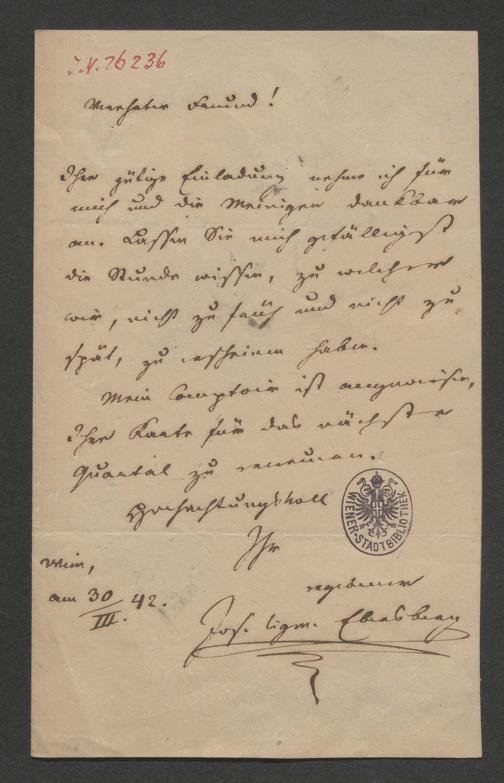 I.N. 26236
Verehrter Freund!
Ihre gütige Einladung nehme ich für
mich und die Meinigen dankbar
an. Lassen Sie mich gefälligst
die Stunde wissen, zu welcher
wir, nicht zu früh und nicht zu
spät, zu erscheinen haben.
Mein Comptoir ist angewiesen,
Ihre Karte für das nächste
Quartal zu erneuern.
Hochachtungsvoll
Ihr
WIENER-STADTBIBLIOTHEK
Wien, 
am 30/III. 42.
ergebener
Jos. Sigm. Ebersberg